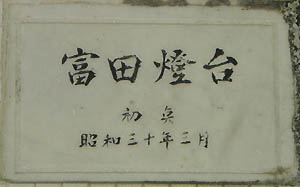 富田燈台
初奌
昭和三十年三月